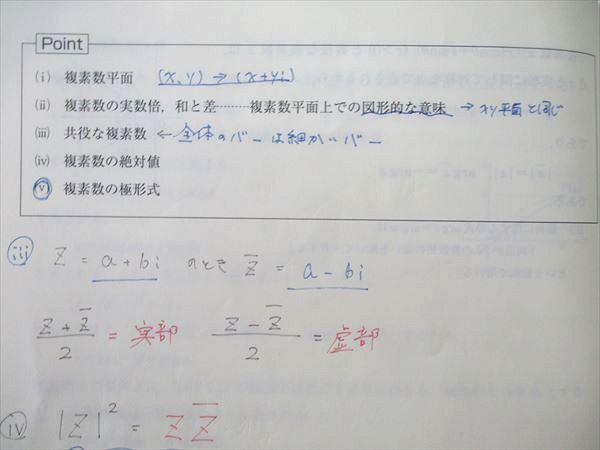 Point
(i) 複素数平面 (x, y) → (x+yi)
(ii) 複素数の実数倍，和と差……複素数平面上での図形的な意味 → xy平面と同じ
(iii) 共役な複素数 ← 全体のバーは細かいバー
(iv) 複素数の絶対値
(v) 複素数の極形式
iii) Z = a+bi のとき z̄ = a−bi
(z+z̄)/2 = 実部 (z−z̄)/2 = 虚部
iv) |z|² = z z̄